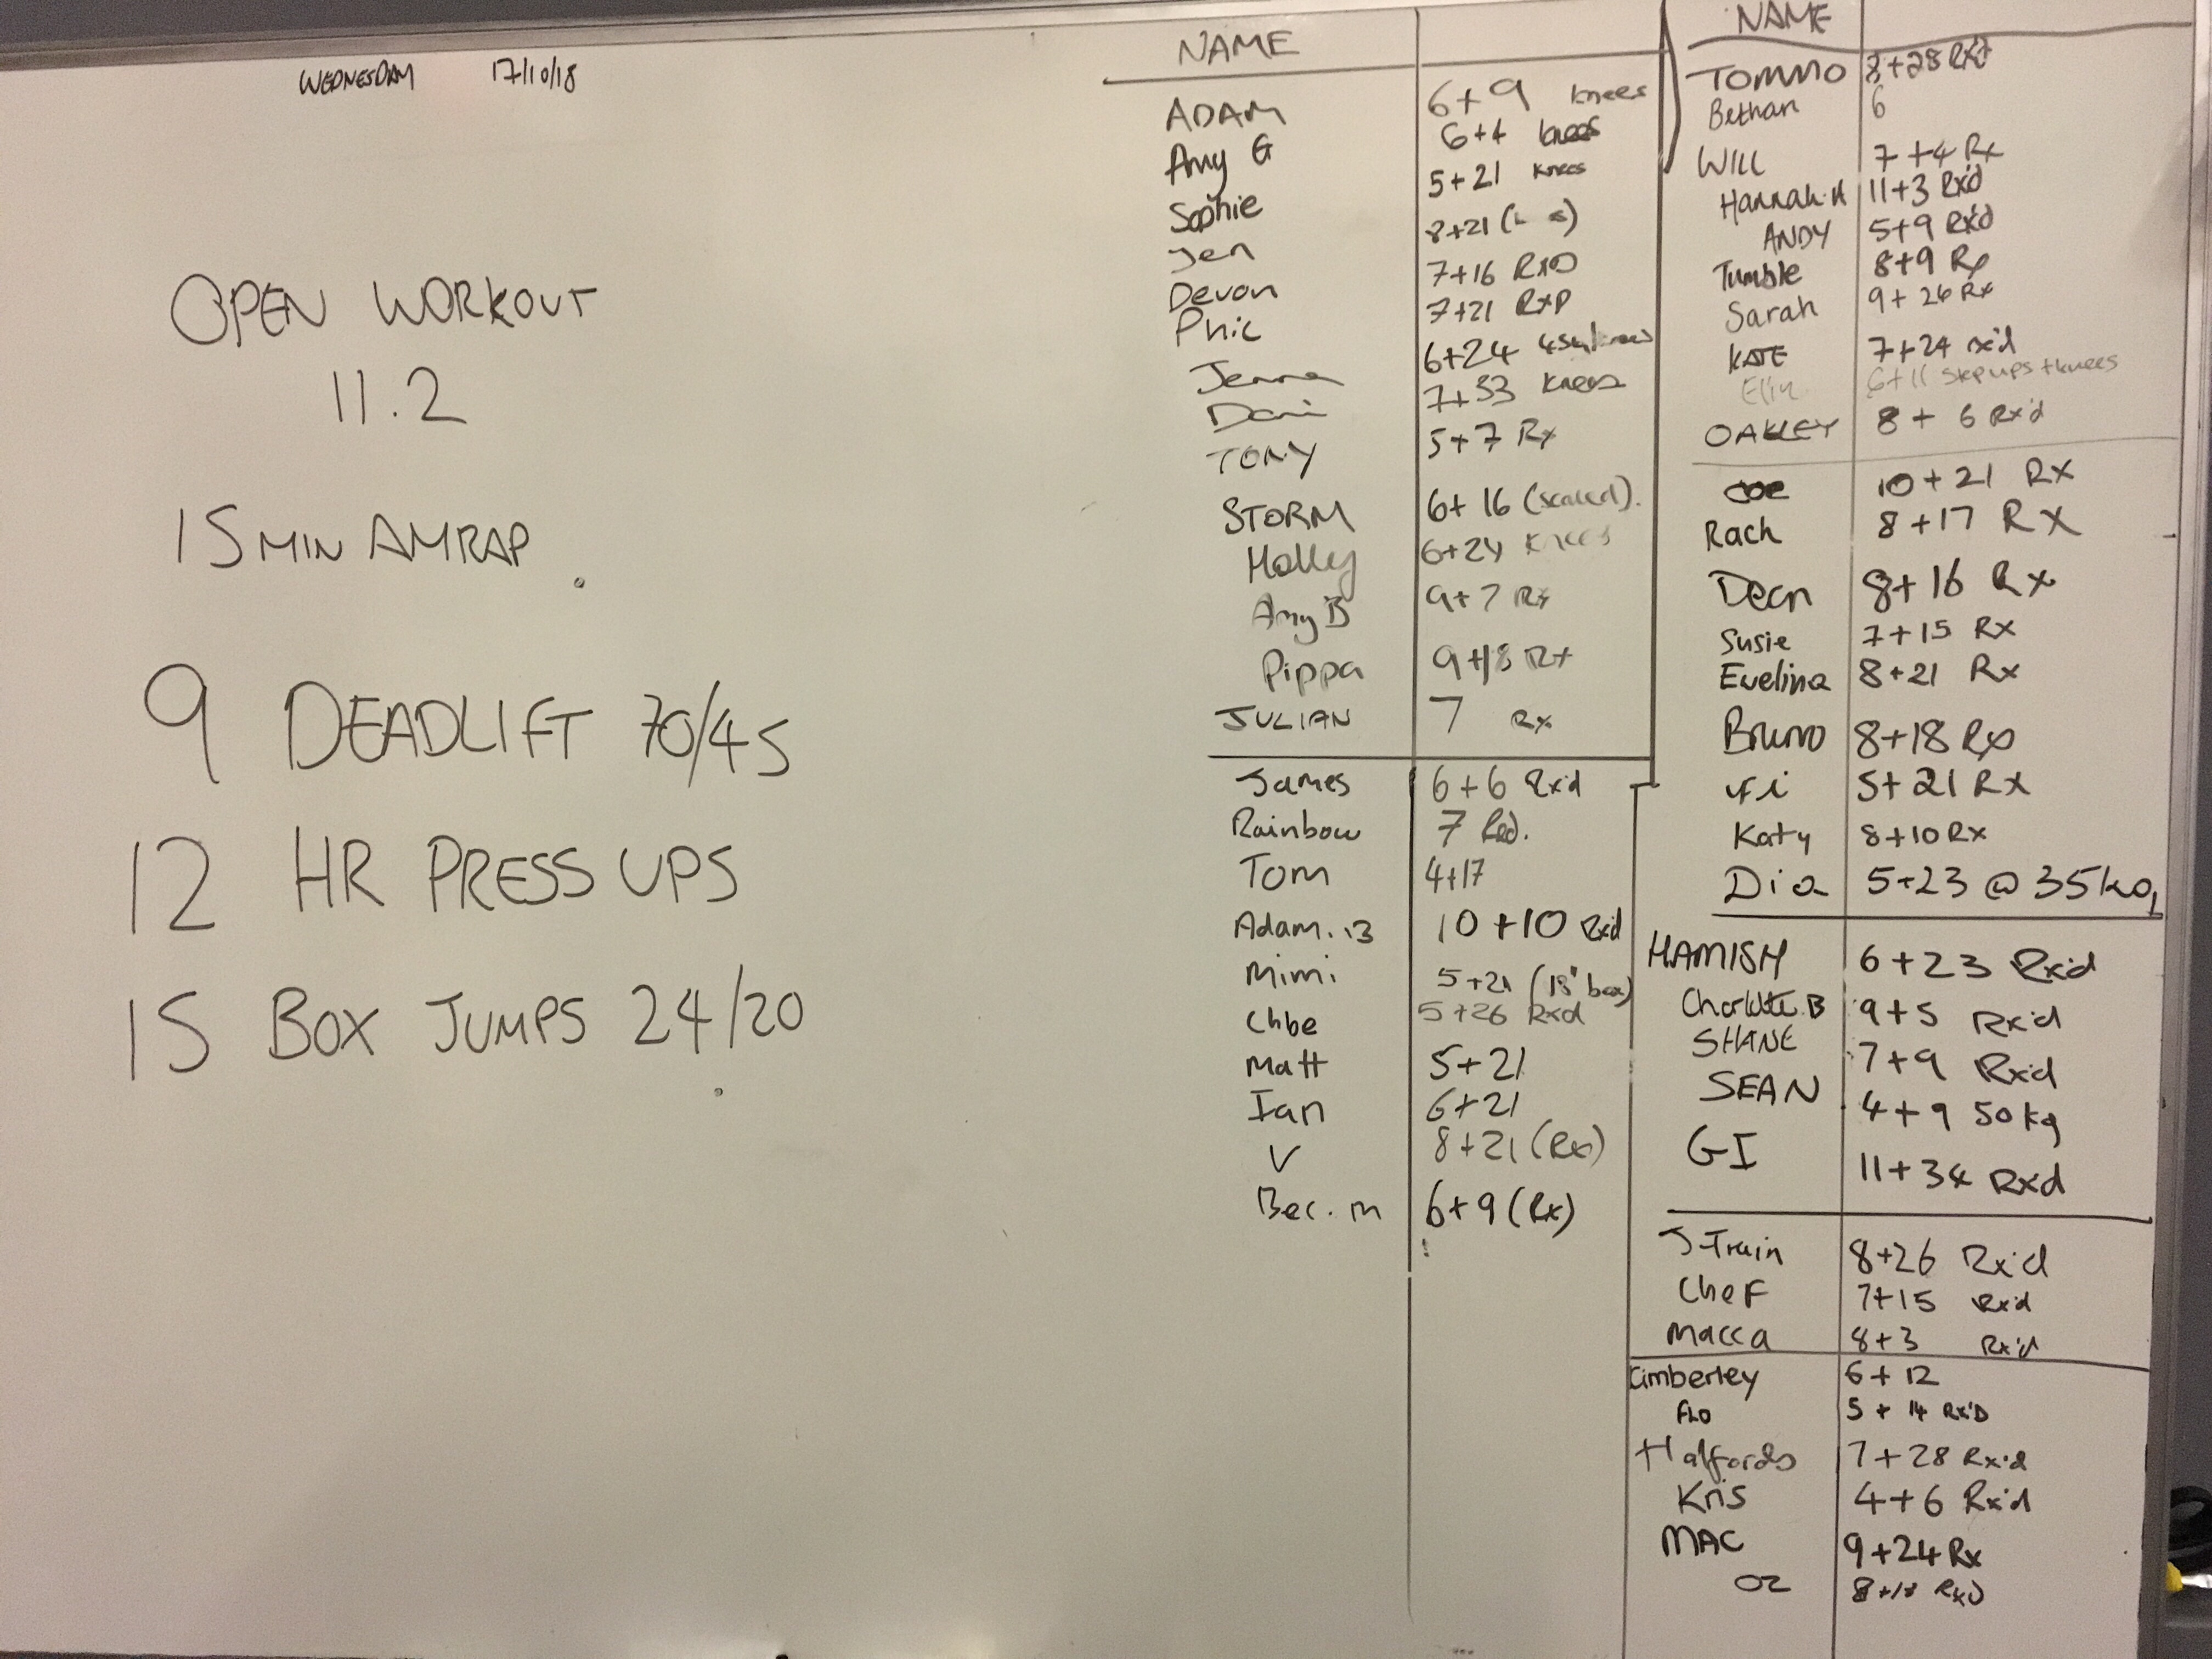 WEDNESDAY 17/10/18
OPEN WORKOUT
11.2
15 MIN AMRAP.
9 DEADLIFT 70/45
12 HR PRESS UPS
15 BOX JUMPS 24/20
NAME
ADAM 6+9 knees
Amy G 6+4 knees
Sophie 5+21 knees
Jen 8+21
Devon 7+16 RXD
Phil 7+21 RXD
Jenna 6+24
Dani 7+33 knees
TONY 5+7 Rx
STORM 6+16 (scaled).
Holly 6+24 knees
Amy B 9+7 Rx
Pippa 9+18 Rx
JULIAN 7 Rx
James 6+6 Rx'd
Rainbow 7 Rxd.
Tom 4+17
Adam.B 10+10 Rx'd
Mimi 5+21 (18" box)
Chloe 5+26 Rxd
Matt 5+21
Ian 6+21
V 8+21 (Rx)
Bec.m 6+9 (Rx)
NAME
TOMMO 8+28 RX'd
Bethan 6
WILL 7+4 Rx
Hannah.H 11+3 Rx'd
ANDY 5+9 Rx'd
Tumble 8+9 Rx
Sarah 9+26 Rx
KATE 7+24 rx'd
Elin 6+11 step ups + knees
OAKLEY 8+6 Rx'd
10+21 RX
Rach 8+17 RX
Dean 8+16 Rx
Susie 7+15 RX
Evelina 8+21 Rx
Bruno 8+18 Rx
Fi 5+21 Rx
Katy 8+10 Rx
Dia 5+23 @ 35kg
HAMISH 6+23 Rx'd
Charlotte.B 9+5 Rx'd
SHANE 7+9 Rx'd
SEAN 4+9 50kg
GI 11+34 Rxd
J-Train 8+26 Rx'd
Chef 7+15 Rx'd
Macca 8+3 Rx'd
Kimberley 6+12
FLO 5+14 RX'D
Halfords 7+28 Rx'd
Kris 4+6 Rx'd
MAC 9+24 Rx
OZ 8+18 RXD